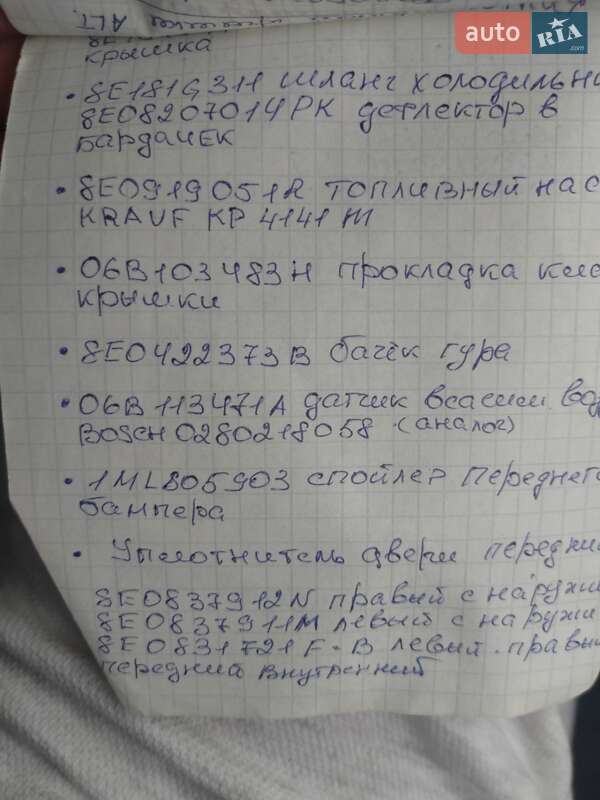 ALT.
auto RIA .com
крышка
• 8E181931 шланг холодильни
8E0820701YPK детлектор в
бардачек
• 8E0919051R топливный нас
KRAUF KP 4141 M
• 06B103483H прокладка кла
крышки
• 8E0422373B бачёк гура
• 06B113471A датчик всасыи воз
BOSCH 0280218058 (аналог)
• 1ML805903 спойлер переднего
бампера
• Уплотнитель двери передни
8E0837912N правый с наружи
8E0837911M левый с наружи
8E0831721F-B левый-правый
передний внутренний